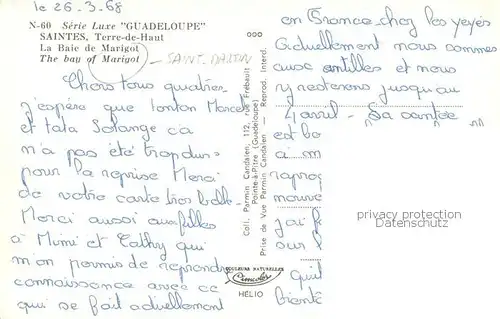 le 26-3-68
N-60 Série Luxe "GUADELOUPE"
SAINTES, Terre-de-Haut
La Baie de Marigot
The bay of Marigot
- SAINT-MARTIN
Chers tous quatre.
J'espère que tonton Marcel
et tata Solange ça
n'a pas été trop dur
pour la reprise Merci
de votre carte très belle.
Merci aussi aux filles
à Mimi et Cathy qui
m'on permis de reprendre
connaissance avec ce
qui se fait actuellement
Coll. Parmin Candalen, 112, rue Frébault
Pointe-à-Pitre (Guadeloupe)
Prise de Vue Parmin Candalen — Reprod. Interd.
COULEURS NATURELLES
HELIO
en France chez les yéyés
Actuellement nous sommes
aux antilles et nous
y resterons jusqu'au
4 avril - La santée
est bo
ai m
rapro
mouve
j'ai f
sur l
quit
bientô
privacy protection
Datenschutz